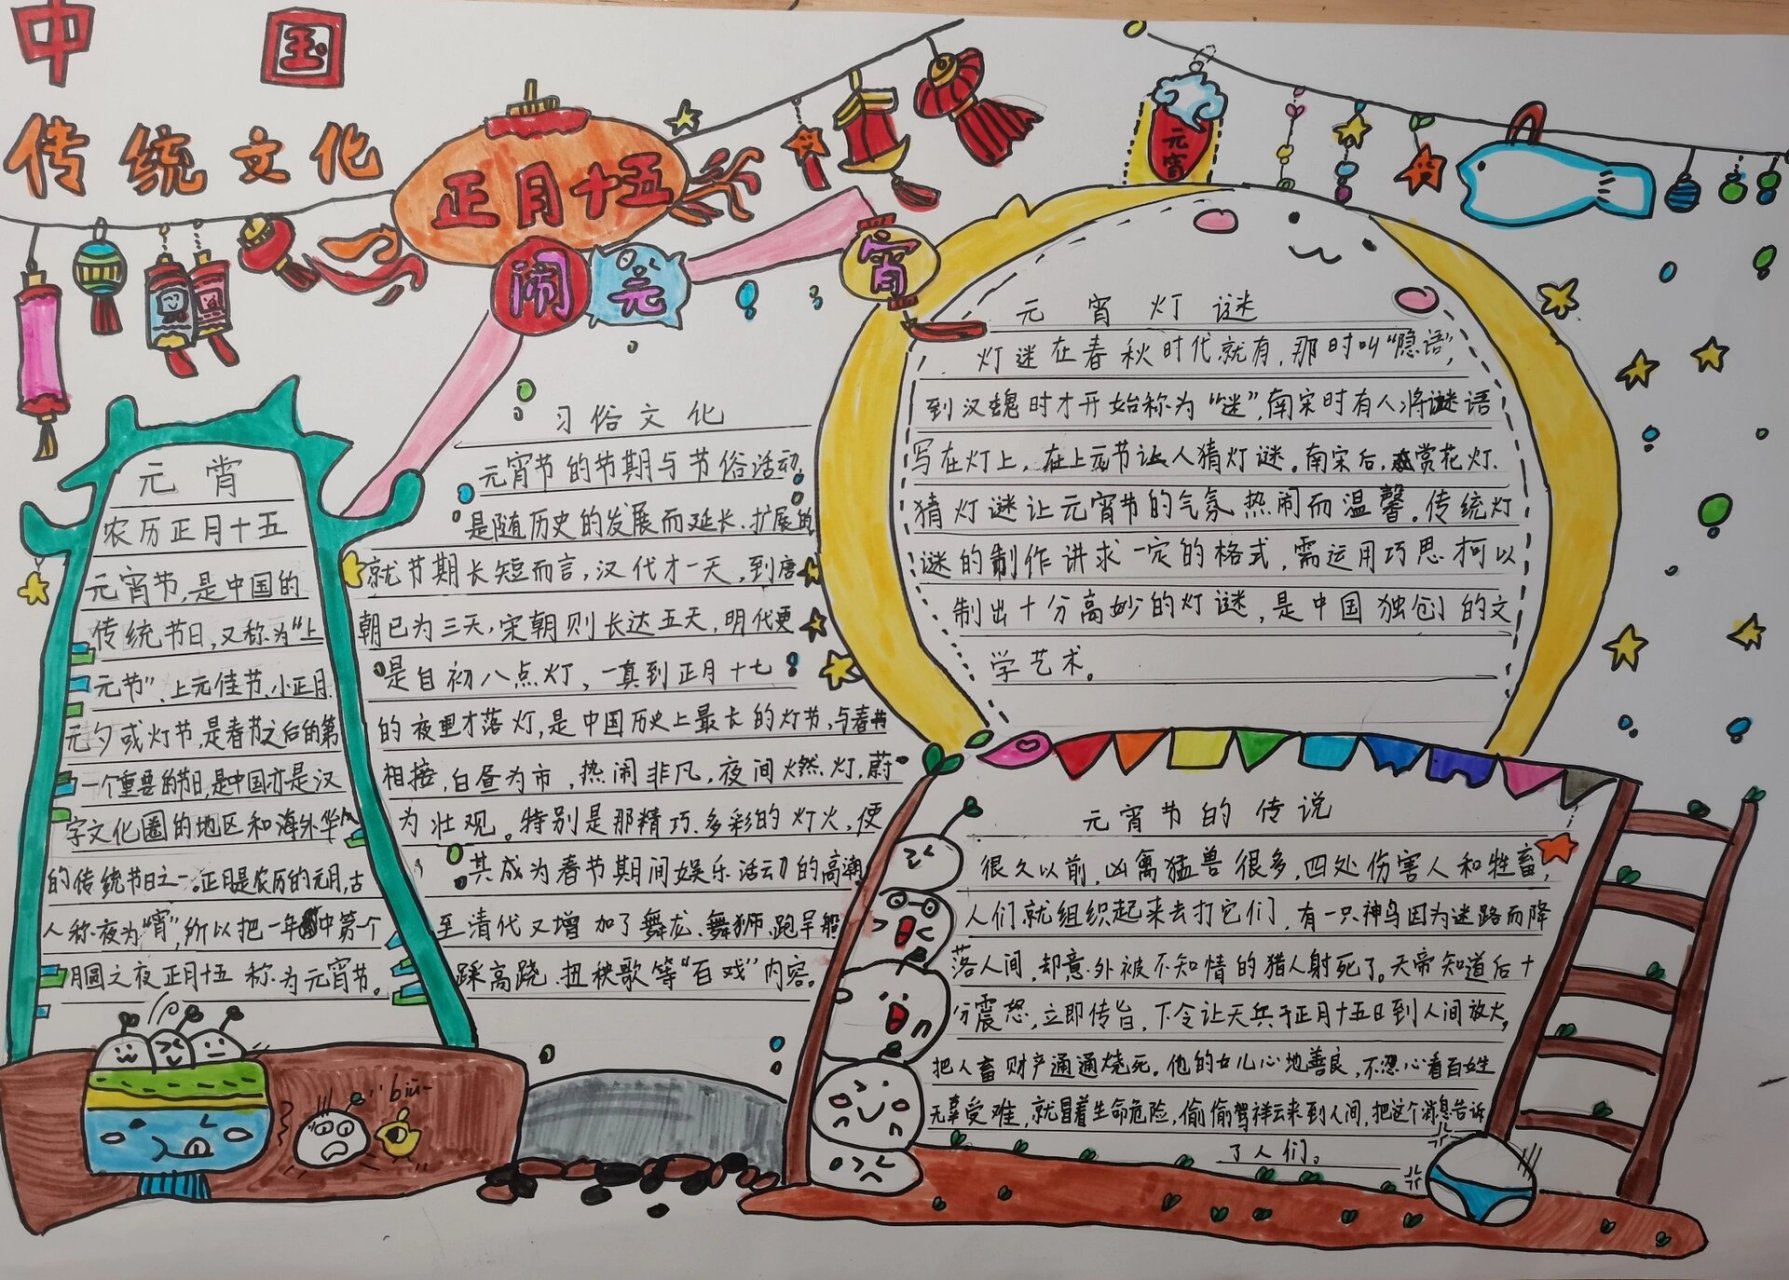 中国
传统文化
正月十五
闹元宵
元宵
元宵
农历正月十五
元宵节,是中国的
传统节日,又称为“上
元节”.上元佳节.小正月.
元夕或灯节,是春节之后的第
一个重要的节日,是中国亦是汉
字文化圈的地区和海外华人
的传统节日之一.正月是农历的元月,古
人称夜为“宵”,所以把一年中第一个
月圆之夜正月十五称为元宵节。
biu~
习俗文化
元宵节的节期与节俗活动,
是随历史的发展而延长、扩展的
就节期长短而言,汉代才一天,到唐
朝已为三天,宋朝则长达五天,明代更
是自初八点灯,一直到正月十七
的夜里才落灯,是中国历史上最长的灯节,与春节
相接,白昼为市,热闹非凡,夜间燃灯,蔚
为壮观。特别是那精巧、多彩的灯火,便
其成为春节期间娱乐活动的高潮
至清代又增加了舞龙、舞狮、跑旱船
踩高跷、扭秧歌等“百戏”内容。
元宵灯谜
灯谜在春秋时代就有,那时叫“隐语”,
到汉魏时才开始称为“谜”,南宋时有人将谜语
写在灯上,在上元节让人猜灯谜。南宋后,赏花灯、
猜灯谜让元宵节的气氛热闹而温馨。传统灯
谜的制作讲求一定的格式,需运用巧思才可以
制出十分高妙的灯谜,是中国独创的文
学艺术。
元宵节的传说
很久以前,凶禽猛兽很多,四处伤害人和牲畜,
人们就组织起来去打它们,有一只神鸟因为迷路而降
落人间,却意外被不知情的猎人射死了。天帝知道后十
分震怒,立即传旨,下令让天兵于正月十五日到人间放火,
把人畜财产通通烧死。他的女儿心地善良,不忍心看百姓
无辜受难,就冒着生命危险,偷偷驾祥云来到人间,把这个消息告诉
了人们。